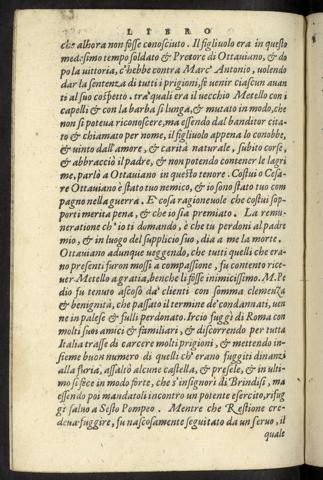 LIBRO
che alhora non fosse conosciuto. Il figliuolo era in questo
medesimo tempo soldato & Pretore di Ottauiano, & do
po la uittoria, c'hebbe contra Marc' Antonio, uolendo
dar la sentenza di tutti i prigioni, fe uenir ciascun auan
ti al suo cospetto. tra' quali era il uecchio Metello con i
capelli & con la barba sì lunga, & mutato in modo, che
non si poteua riconoscere, ma essendo dal banditor cita-
to & chiamato per nome, il figliuolo appena lo conobbe,
& uinto dall'amore, & carità naturale, subito corse,
& abbracciò il padre, & non potendo contener le lagri
me, parlò a Ottauiano in questo tenore. Costui o Cesa-
re Ottauiano è stato tuo nemico, & io sono stato tuo com
pagno nella guerra. E' cosa ragioneuole che costui sop-
porti merita pena, & che io sia premiato. La remu-
neratione ch'io ti domando, è che tu perdoni al padre
mio, & in luogo del supplicio suo, dia a me la morte.
Ottauiano adunque ueggendo, che tutti quelli che era-
no presenti furon mossi a compassione, fu contento rice-
uer Metello a gratia, benche li fosse inimicissimo. M. Pe
dio fu tenuto ascoso da' clienti con somma clemenza
& benignità, che passato il termine de' condannati, uen
ne in palese & fulli perdonato. Ircio fuggè di Roma con
molti suoi amici & familiari, & discorrendo per tutta
Italia trasse di carcere molti prigioni, & mettendo in-
sieme buon numero di quelli ch'erano fuggiti dinanzi
alla furia, assaltò alcune castella, & presele, & in ulti-
mo si fece in modo forte, che s'insignorì di Brindisi, ma
essendo poi mandatoli incontro un potente esercito, rifug
gì saluo a Sesto Pompeo. Mentre che Restione cre-
deua fuggire, fu nascosamente seguitato da un seruo, il
quale